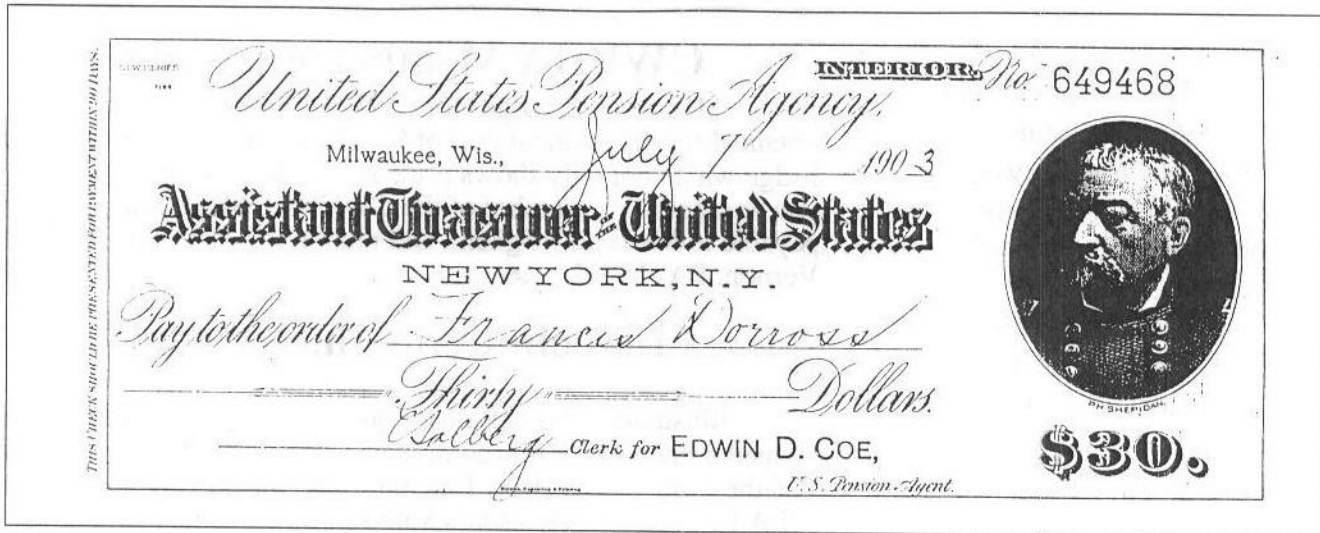 THIS CHECK SHOULD BE PRESENTED FOR PAYMENT WITHIN 90 DAYS.
INTERIOR. No. 649468
United States Pension Agency,
Milwaukee, Wis., July 7 1903
Assistant Treasurer OF THE United States
NEW YORK, N.Y.
Pay to the order of Francis Dorross
Thirty Dollars.
Solberg Clerk for EDWIN D. COE,
U. S. Pension Agent.
PH SHERIDAN.
$30.